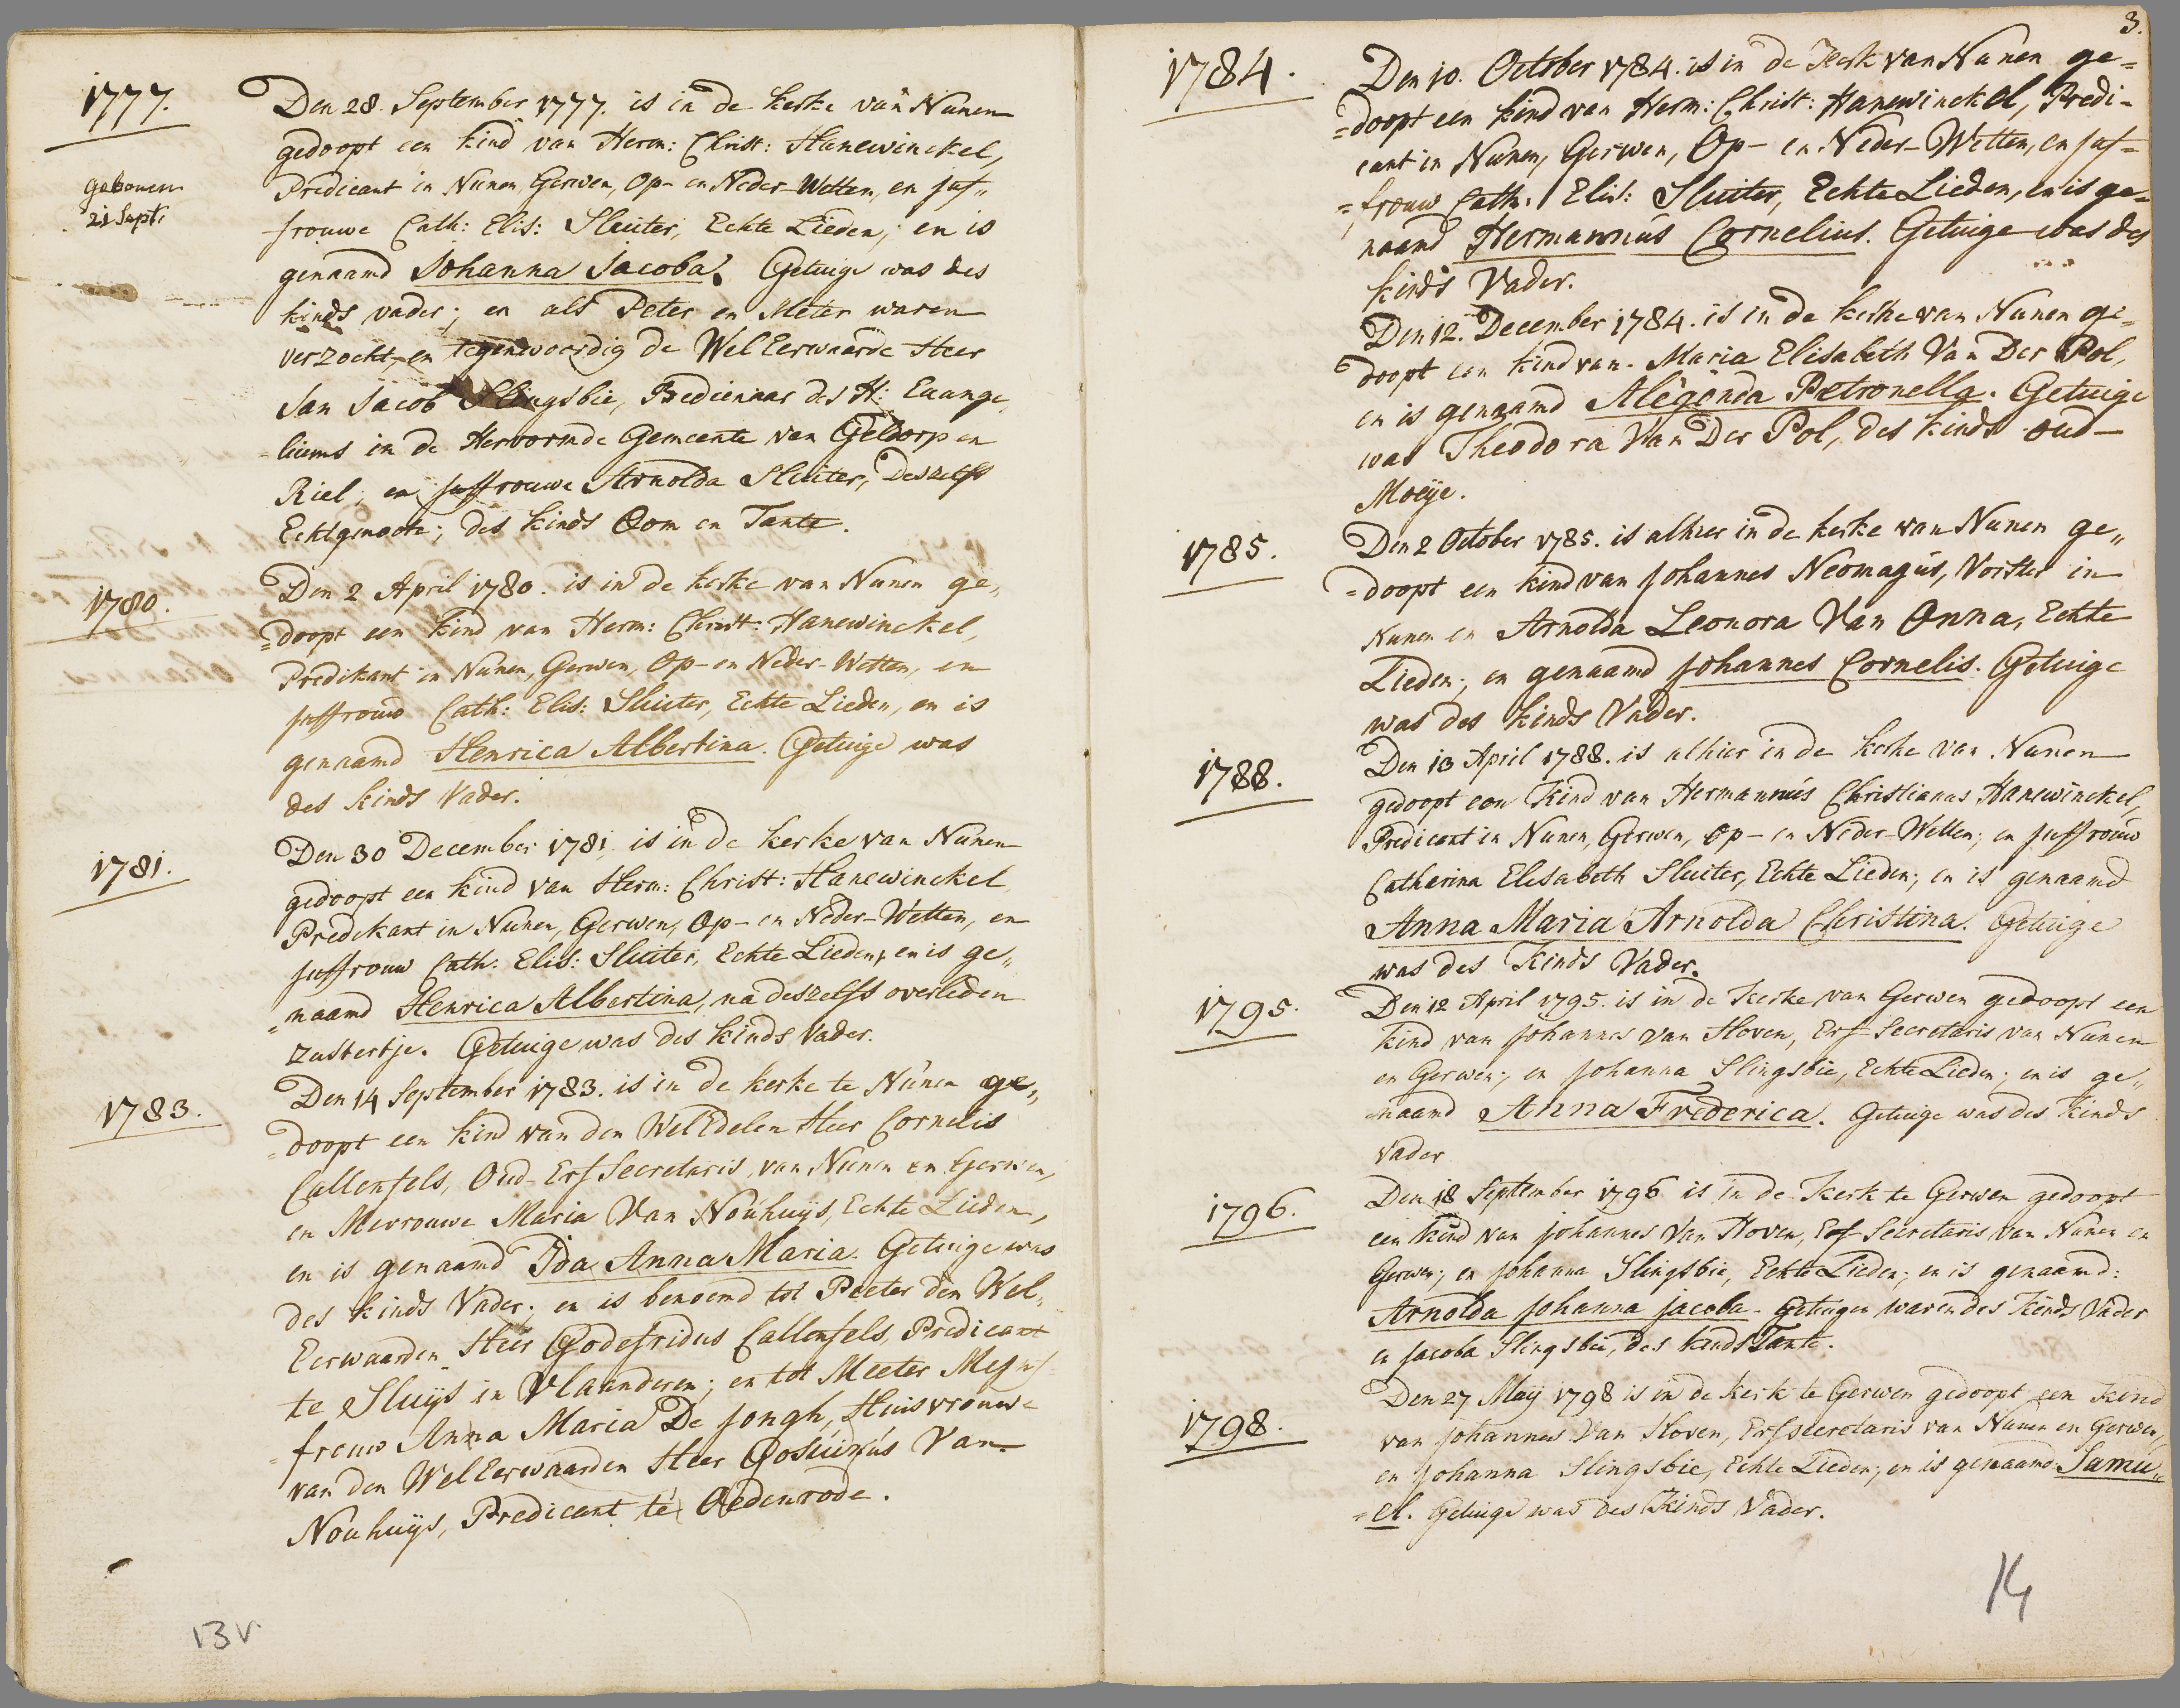 1777.
Den 28. September 1777. is in de kerke van Nunen
gedoopt een kind van Herm: Christ: Hanewinckel,
geboren
Predicant in Nunen, Gerwen, Op- en Neder-Wetten, en juf„
21 Sept:
frouwe Cath: Elis: Sluiter, Echte Lieden; en is
genaamd Johanna Jacoba. Getuige was des
kinds vader; en als Peter en Meter waren
verzocht, en tegenwoordig de WelEerwaarde Heer
Jan Jacob Slingsbie, Bedienaar des H: Euange„
liums in de Hervormde Gemeente van Geldorp en
Riel; en juffrouwe Arnolda Sluiter, Deszelfs
Echtgenoote; des kinds Oom en Tante.
1780.
Den 2 April 1780. is in de kerke van Nunen ge„
=doopt een kind van Herm: Christ: Hanewinckel,
Predikant in Nunen, Gerwen, Op- en Neder-Wetten, en
juffrouw Cath: Elis: Sluiter, Echte Lieden, en is
genaamd Henrica Albertina. Getuige was
des kinds Vader.
1781.
Den 30 December 1781, is in de kerke van Nunen
gedoopt een kind van Herm: Christ: Hanewinckel
Predikant in Nunen, Gerwen, Op- en Neder-Wetten, en
juffrouw Cath. Elis: Sluiter, Echte Lieden, en is ge„
=naamd Henrica Albertina, na deszelfs overleden
zustertje. Getuige was des kinds Vader.
1783.
Den 14 September 1783. is in de kerke te Nunen ge„
=doopt een kind van den WelEdelen Heer Cornelis
Callenfels, Oud-Erf Secretaris van Nunen en Gerwen,
en Mevrouwe Maria Van Nouhuijs, Echte Lieden,
en is genaamd Ida Anna Maria. Getuige was
des kinds Vader; en is benoemd tot Peeter den Wel„
Eerwaarden Heer Godefridus Callenfels, Predicant
te Sluijs in Vlaanderen; en tot Meeter Mejuf
=frouw Anna Maria De Jongh, Huisvrouwe
van den WelEerwaarden Heer Gosuinus Van
Nouhuijs, Predicant te Oedenrode.
13v
3.
1784.
Den 10. October 1784. is in de Kerk van Nunen ge=
=doopt een kind van Herm: Christ: Hanewinckel, Predi=
cant in Nunen, Gerwen, Op- en Neder-Wetten, en juf=
=frouw Cath. Elis: Sluiter, Echte Lieden, en is ge=
naamd Hermannus Cornelius. Getuige was des
kinds Vader.
Den 12. December 1784. is in de kerke van Nunen ge=
doopt een kind van Maria Elisabeth Van Der Pol,
en is genaamd Alegonda Petronella. Getuige
was Theodora Van Der Pol, des kinds oud-
Moeije.
1785.
Den 2 October 1785. is alhier in de kerke van Nunen ge„
=doopt een kind van Johannes Neomagus, Vorster in
Nunen en Arnolda Leonora Van Onna, Echte
Lieden; en genaamd Johannes Cornelis. Getuige
was des kinds Vader.
1788.
Den 13 April 1788. is alhier in de kerke van Nunen
gedoopt een Kind van Hermannus Christianus Hanewinckel,
Predicant in Nunen, Gerwen, Op- en Neder-Wetten; en juffrouw
Catharina Elisabeth Sluiter, Echte Lieden; en is genaamd
Anna Maria Arnolda Christina. Getuige
was des Kinds Vader.
1795.
Den 12 April 1795. is in de Kerke van Gerwen gedoopt een
kind van Johannes van Hoven, Erf Secretaris van Nunen
en Gerwen; en Johanna Slingsbie, Echte Lieden; en is ge„
naamd Anna Frederica. Getuige was des Kinds
Vader
1796.
Den 18 September 1796 is in de Kerk te Gerwen gedoopt
een kind van Johannes Van Hoven, Erf Secretaris van Nunen en
Gerwen; en Johanna Slingsbie, Echte Lieden; en is genaamd:
Arnolda Johanna Jacoba. Getuigen waren des Kinds Vader
en Jacoba Slingsbie, des kinds Tante.
1798.
Den 27 Maij 1798 is in de kerk te Gerwen gedoopt een Kind
van Johannes Van Hoven, Erfsecretaris van Nunen en Gerwen,
en Johanna Slingsbie, Echte Lieden; en is genaamd Samu„
=el. Getuige was des Kinds Vader.
14